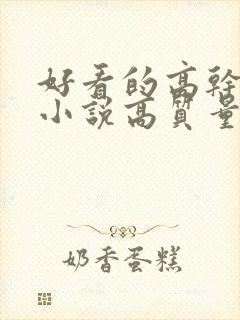 好看的高幹
小説高質量
奶香蛋糕